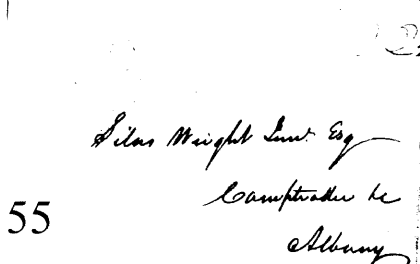 Silas Wright Junr. Esq
Comptroller &c
Albany
55